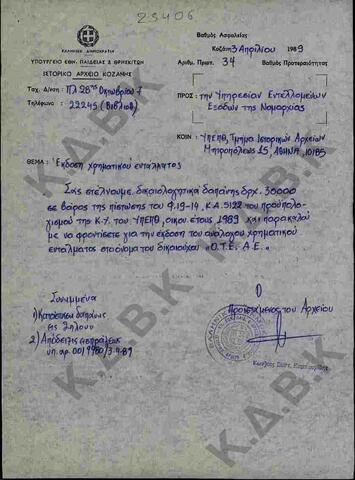 25406
ΕΛΛΗΝΙΚΗ ΔΗΜΟΚΡΑΤΙΑ
ΥΠΟΥΡΓΕΙΟ ΕΘΝ. ΠΑΙΔΕΙΑΣ & ΘΡΗΣΚΕΥΜΑΤΩΝ
ΙΣΤΟΡΙΚΟ ΑΡΧΕΙΟ ΚΟΖΑΝΗΣ
Ταχ. Δ/νση: Πλ 28ης Οκτωβρίου 7
Τηλέφωνο: 22245 (Βιβλιοθ)
Βαθμός Ασφαλείας
Κοζάνη 3 Απριλίου 1989
Αριθμ. Πρωτ. 34 Βαθμός Προτεραιότητας
ΠΡΟΣ: την Υπηρεσίαν Εντελλομένων
Εξόδων της Νομαρχίας
ΚΟΙΝ: ΥΠΕΠΘ, Τμήμα Ιστορικών Αρχείων
Μητροπόλεως 15, ΑΘΗΝΑ, 10185
ΘΕΜΑ: Έκδοση χρηματικού εντάλματος
Σας στέλνουμε, δικαιολογητικά δαπάνης δρχ. 30000
σε βάρος της πίστωσης του Φ.19-14, Κ.Α. 5122 του προϋπολο-
χισμού της Κ.Υ. του ΥΠΕΠΘ, οικον. έτους 1989 και παρακαλού
με να φροντίσετε για την έκδοση του ανάλογου χρηματικού
εντάλματος στο όνομα του δικαιούχου Ο.Τ.Ε. Α.Ε.
Συνημμένα
1) Κατάσταση δαπάνης
εις 2πλούν
2) Απόδειξις εισπράξεως
υπ. αρ. 3-4-89
Ο
Προϊστάμενος του Αρχείου
Κ.Δ.Β.Κ